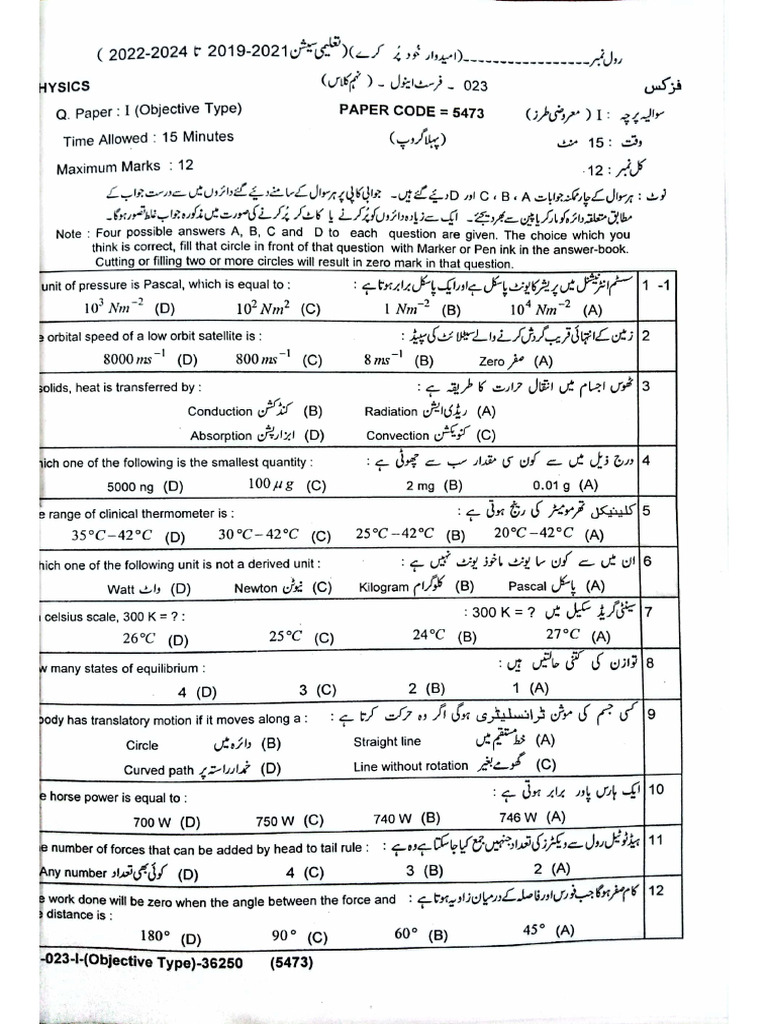 رول نمبر ------------------ (امیدوار خود پُر کرے) (تعلیمی سیشن 2021-2019 تا 2024-2022 )
HYSICS 023 - فرسٹ اینول - (نہم کلاس) فزکس
Q. Paper : I (Objective Type) PAPER CODE = 5473 سوالیہ پرچہ : I (معروضی طرز)
Time Allowed : 15 Minutes (پہلا گروپ) وقت : 15 منٹ
Maximum Marks : 12 کل نمبر : 12
نوٹ : ہر سوال کے چار ممکنہ جوابات C ، B ، A اور D دیئے گئے ہیں۔ جوابی کاپی پر ہر سوال کے سامنے دیئے گئے دائروں میں سے درست جواب کے
مطابق متعلقہ دائرہ کو مارکر یا پین سے بھر دیجئے۔ ایک سے زیادہ دائروں کو پُر کرنے یا کاٹ کر پُر کرنے کی صورت میں مذکورہ جواب غلط تصور ہوگا۔
Note : Four possible answers A, B, C and D to each question are given. The choice which you
think is correct, fill that circle in front of that question with Marker or Pen ink in the answer-book.
Cutting or filling two or more circles will result in zero mark in that question.
unit of pressure is Pascal, which is equal to : سسٹم انٹرنیشنل میں پریشر کا یونٹ پاسکل ہے اور ایک پاسکل برابر ہوتا ہے : 1 -1
10³ Nm⁻² (D) 10² Nm² (C) 1 Nm⁻² (B) 10⁴ Nm⁻² (A)
e orbital speed of a low orbit satellite is : زمین کے انتہائی قریب گردش کرنے والے سیٹلائٹ کی سپیڈ : 2
8000 ms⁻¹ (D) 800 ms⁻¹ (C) 8 ms⁻¹ (B) Zero صفر (A)
solids, heat is transferred by : ٹھوس اجسام میں انتقال حرارت کا طریقہ ہے : 3
Conduction کنڈکشن (B) Radiation ریڈی ایشن (A)
Absorption ابزارپشن (D) Convection کنویکشن (C)
hich one of the following is the smallest quantity : درج ذیل میں سے کون سی مقدار سب سے چھوٹی ہے : 4
5000 ng (D) 100 μg (C) 2 mg (B) 0.01 g (A)
e range of clinical thermometer is : کلینیکل تھرمومیٹر کی رینج ہوتی ہے : 5
35°C–42°C (D) 30°C–42°C (C) 25°C–42°C (B) 20°C–42°C (A)
hich one of the following unit is not a derived unit : ان میں سے کون سا یونٹ ماخوذ یونٹ نہیں ہے : 6
Watt واٹ (D) Newton نیوٹن (C) Kilogram کلوگرام (B) Pascal پاسکل (A)
celsius scale, 300 K = ? : سینٹی گریڈ سکیل میں ? = 300 K : 7
26°C (D) 25°C (C) 24°C (B) 27°C (A)
w many states of equilibrium : توازن کی کتنی حالتیں ہیں : 8
4 (D) 3 (C) 2 (B) 1 (A)
body has translatory motion if it moves along a : کسی جسم کی موشن ٹرانسلیٹری ہوگی اگر وہ حرکت کرتا ہے : 9
Circle دائرہ میں (B) Straight line خط مستقیم میں (A)
Curved path خمدار راستہ پر (D) Line without rotation گھومے بغیر (C)
e horse power is equal to : ایک ہارس پاور برابر ہوتی ہے : 10
700 W (D) 750 W (C) 740 W (B) 746 W (A)
e number of forces that can be added by head to tail rule : ہیڈ ٹو ٹیل رول سے ویکٹرز کی تعداد جنہیں جمع کیا جاسکتا ہے وہ ہے : 11
Any number کوئی بھی تعداد (D) 4 (C) 3 (B) 2 (A)
e work done will be zero when the angle between the force and کام صفر ہوگا جب فورس اور فاصلہ کے درمیان زاویہ ہوتا ہے : 12
e distance is :
180° (D) 90° (C) 60° (B) 45° (A)
-023-I-(Objective Type)-36250 (5473)